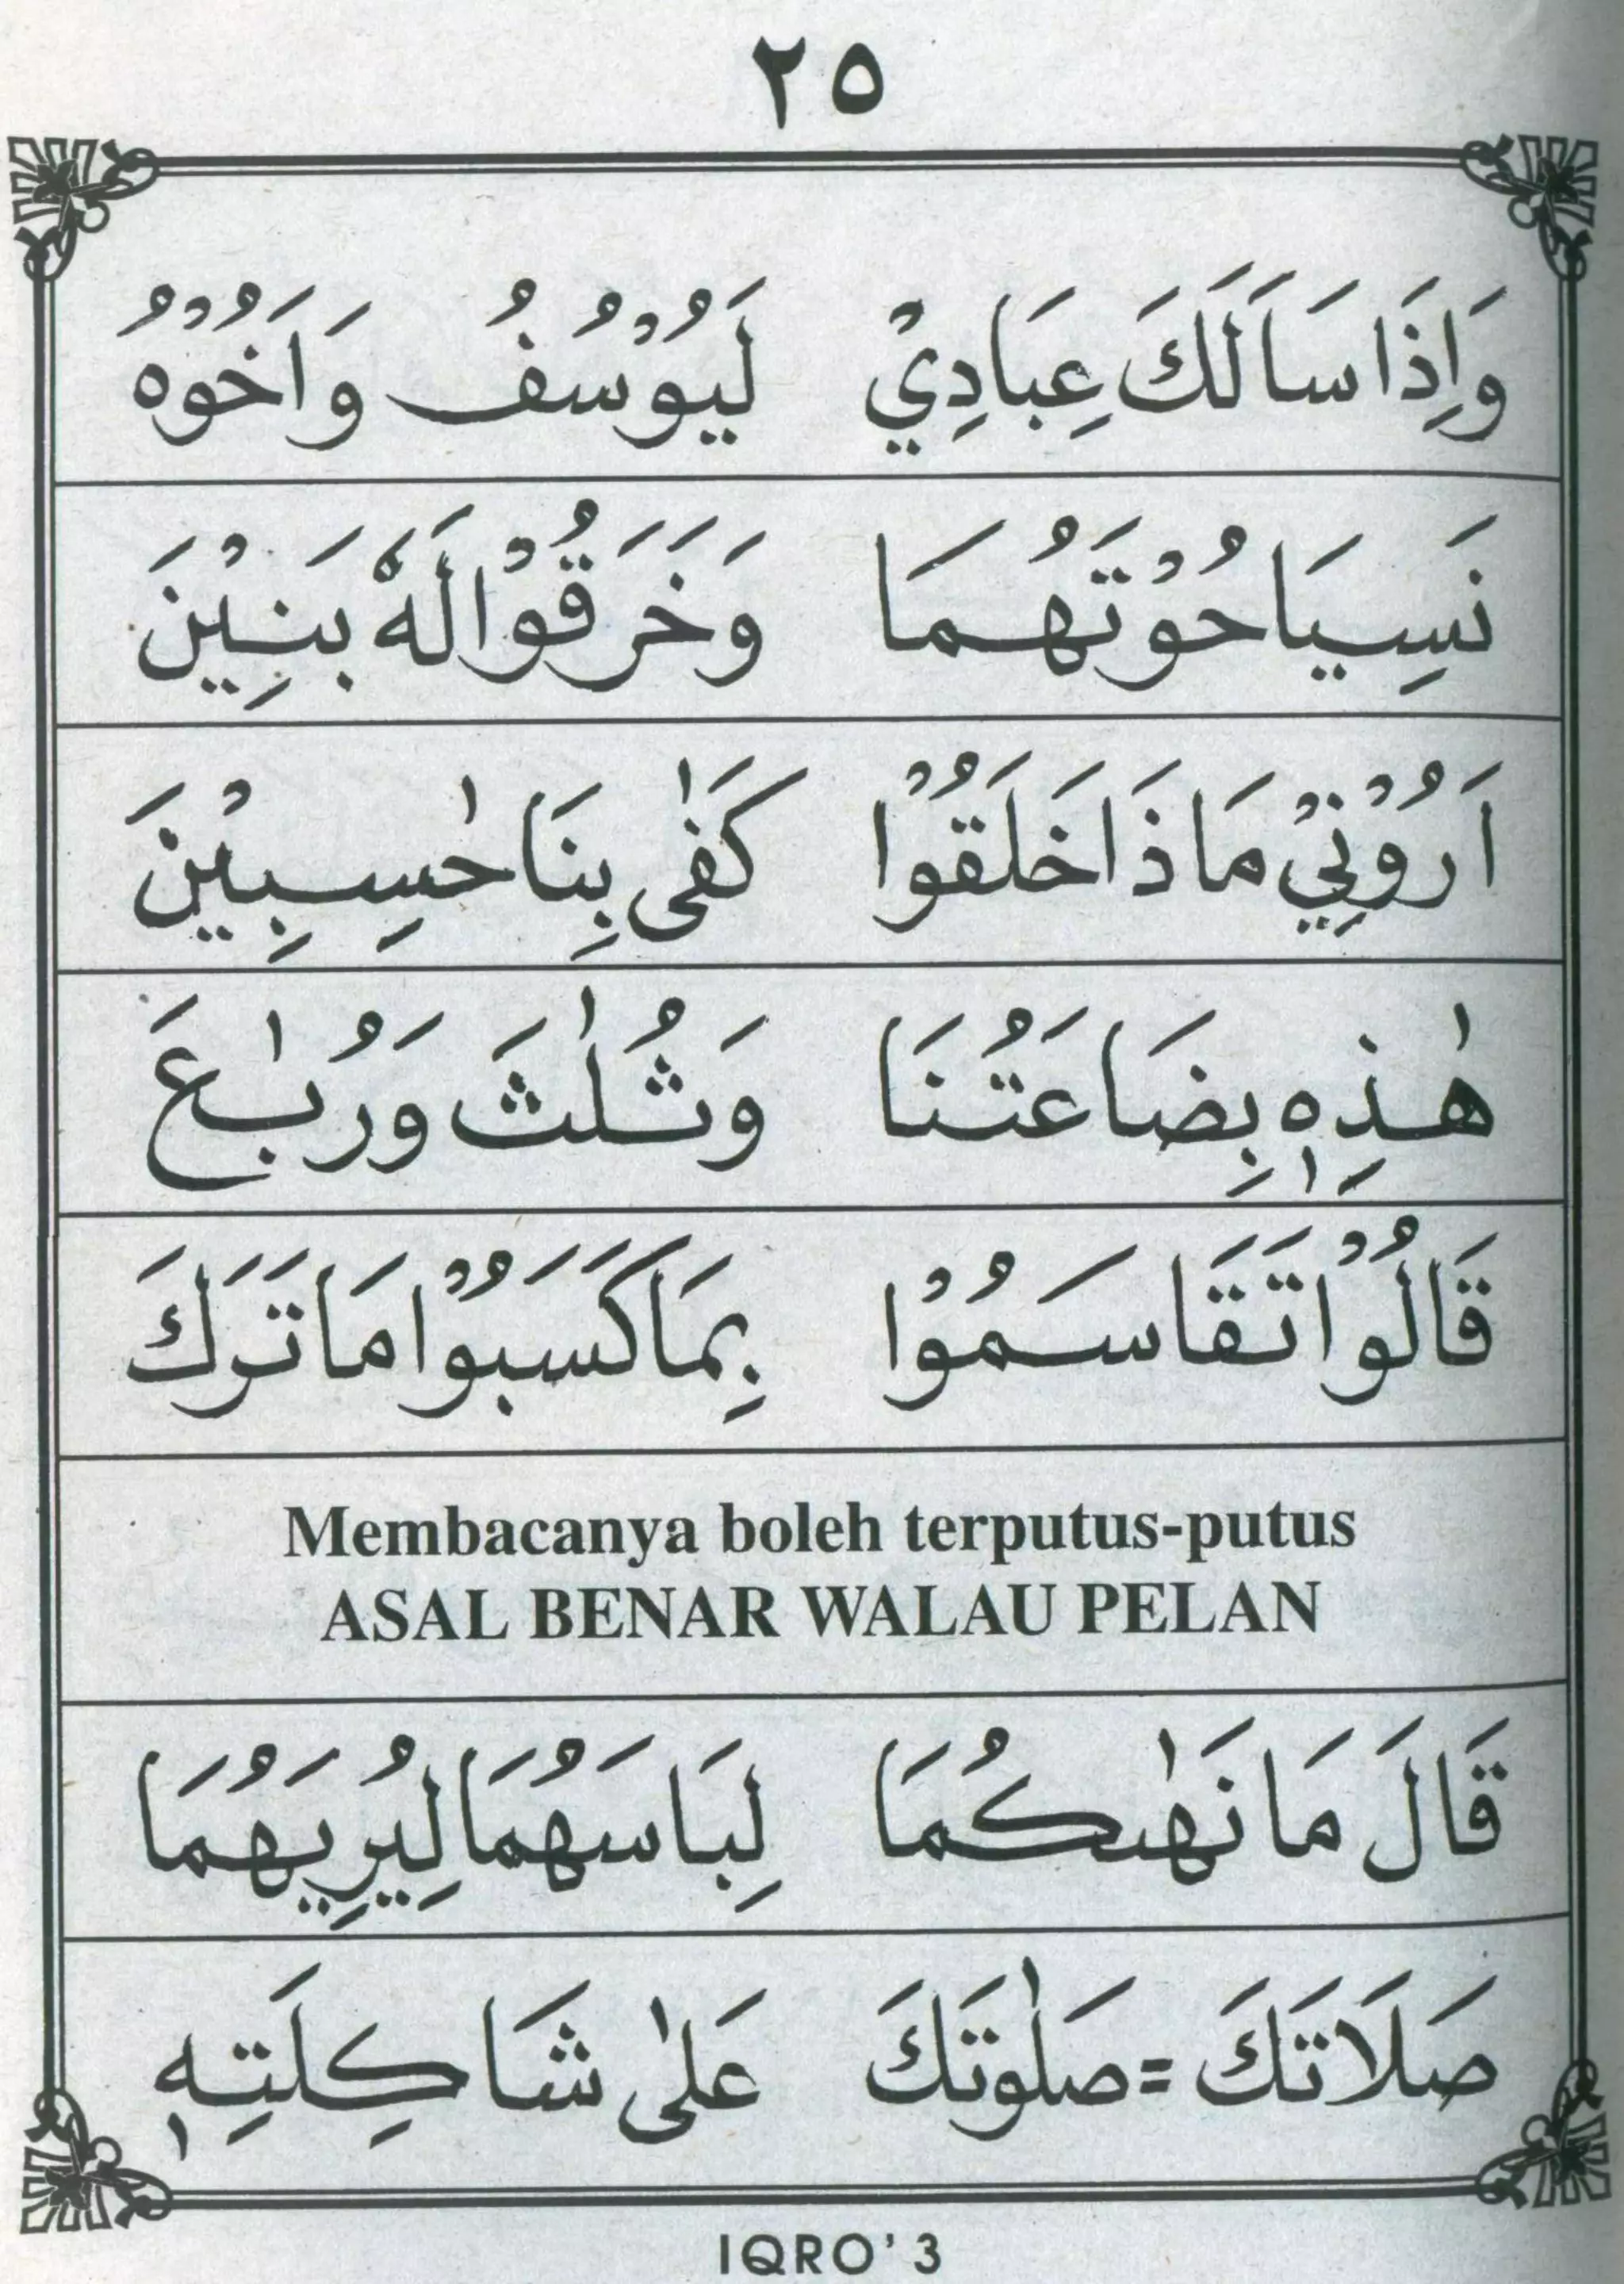 ٢٥
وَاِذَا سَاَلَكَ عِبَادِيْ لَيُوْسُفُ وَاَخُوْهُ
نَسِيَا حُوْتَهُمَا وَخَرَقُوْا لَهٗ بَنِيْنَ
اَرُوْنِيْ مَاذَا خَلَقُوْا كَفٰى بِنَا حٰسِبِيْنَ
هٰذِهٖ بِضَاعَتُنَا وَثُلٰثَ وَرُبٰعَ
قَالُوْا تَقَاسَمُوْا بِمَا كَسَبُوْا مَا تَرَكَ
Membacanya boleh terputus-putus
ASAL BENAR WALAU PELAN
قَالَ مَا نَهٰىكُمَا لِبَاسَهُمَا لِيُرِيَهُمَا
صَلَاتَكَ = صَلٰوتَكَ عَلٰى شَاكِلَتِهٖ
IQRO' 3